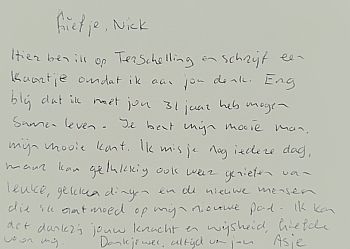 Liefje, Nick
Hier ben ik op Terschelling en schrijf een
kaartje omdat ik aan jou denk. Erg
blij dat ik met jou 31 jaar heb mogen
samen leven. Je bent mijn mooie man,
mijn mooie kant. Ik mis je nog iedere dag,
maar kan gelukkig ook weer genieten van
leuke, gekke dingen en de nieuwe mensen
die ik ontmoed op mijn nieuwe pad. Ik kan
dat dankzij jouw kracht en wijsheid, liefde
voor mij. Dankjewel, altijd van jou